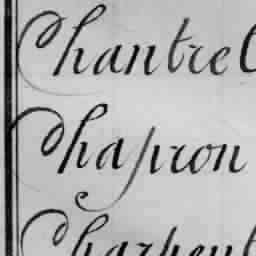 Chantrel
Chapron
Charpent